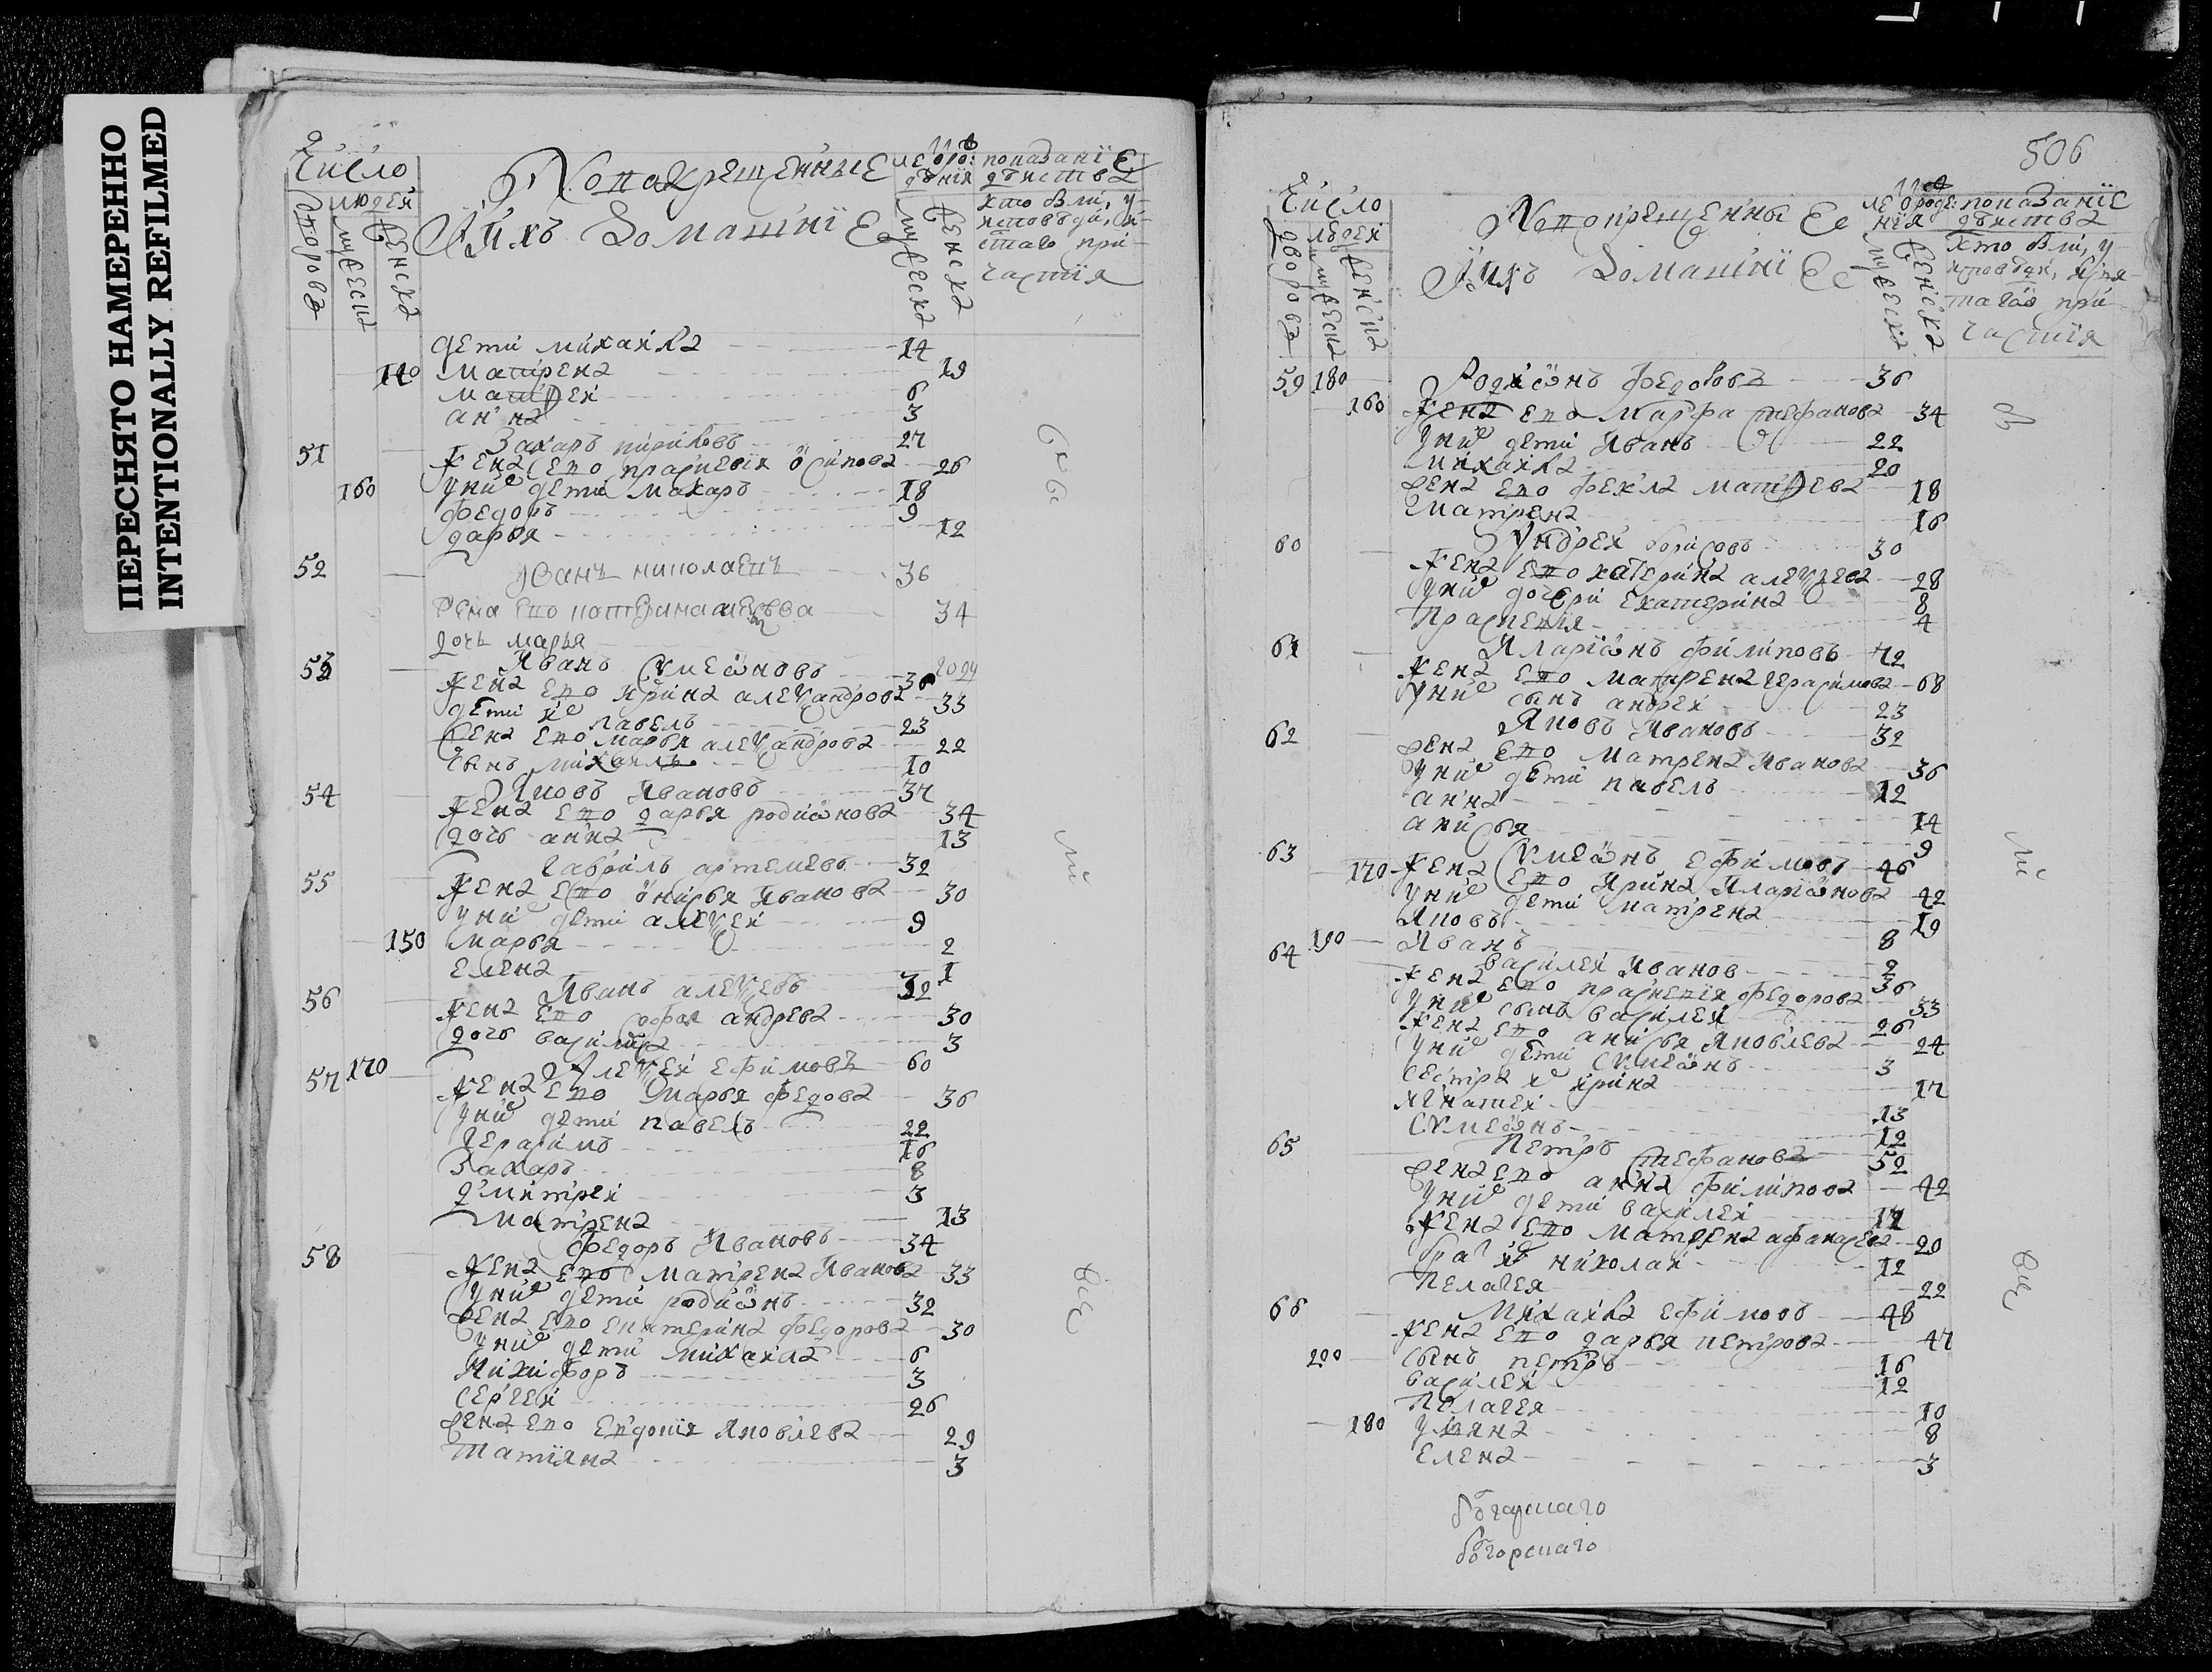 ПЕРЕСНЯТО НАМЕРЕННО
INTENTIONALLY REFILMED
Число
людей
дворовъ
мужеска
женска
Новокрещенные
И ихъ домашнїе
лѣ ѿ рождѣнїя
мужеска
женска
показанїе
дѣйства
хто былъ у
исповѣди, и
стаго при-
частїя
дети михаила 14
140 матрена 19
матфеи 6
анна 3
51 Захаръ кириловъ 27
жена его праскевїя ѻсипова 26
160 у них дети макаръ 18
федоръ 9
дарья 12
52 Иванъ николаевъ 36
жена его катерина 34
дочь марья
53 Иванъ сѵмеѡновъ 36
жена его ирина алеѯандрова 33
дети их павелъ 23
жена его марья алеѯандрова 22
сынъ михаилъ 10
54 Яковъ Ивановъ 37
жена его дарья родиѡнова 34
дочь анна 13
55 гаврилъ артемевъ 32
жена его ѻнисья Иванова 30
у них дети алеѯеи 9
150 марья 2
елена 1
56 Иванъ алеѯевъ 32
жена его софья андрева 30
дочь василиса 3
57 170 Алеѯеи ефимовъ 60
жена его марья федова 36
у них дети павелъ 22
герасимъ 16
Захаръ 8
дмитреи 3
матрена 13
58 федоръ Ивановъ 34
жена его матрена Иванова 33
у них дети родиѡнъ 32
жена его екатерина федорова 30
у них дети михаила 6
никифоръ 3
сергеи 26
жена его евдокия Яковлева 29
татїяна 3
506
Число
людей
дворовъ
мужеска
женска
Новокрещенные
И ихъ домашнїе
лѣ ѿ рожде
нїя
мужеска
женска
показанїе
дѣйства
хто былъ, у
исповѣди, и свя-
таго при-
частїя
59 180 Родиѡнъ федоровъ 36
160 жена его марфа стефанова 34
у них дети Иванъ 22
михаила 20
жена его фекла матфева 18
матрена 16
60 Андреи борисовъ 30
жена его катерина алеѯева 28
у них дочери екатерина 8
праскевїя 4
61 Иларїѡнъ филиповъ 72
жена его матрена герасимова 68
у них сынъ андреи 23
62 Яковъ Ивановъ 32
жена его матрена Иванова 36
у них дети павелъ 12
анна
анисья 14
63 Сѵмеѡнъ ефимовъ 46 9
170 жена его Ирина Иларїѡнова 42
у них дети матрена 19
Яковъ
190 Иванъ 8
64 василеи Иванов 2
жена его праскевїя федорова 36 33
у них сынъ василеи 26
жена его анисья Яковлева 24
у них дети сѵмеѡнъ 3
сестра их ирина 17
игнатеи 13
сѵмеѡнъ 12
65 Петръ стефановъ 52
жена его анна филипова 42
у них дети василеи 17
жена его матрена афанасева 20
брат их николаи 12
пелагея 22
66 михаила ефимовъ 48
жена его дарья петрова 47
200 сынъ петръ 16
василеи 12
пелагея 10
180 уляна 8
елена 3
богорскаго